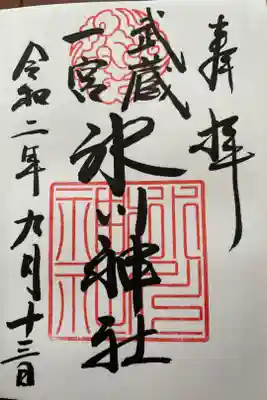 奉拝
武蔵
一宮
氷川神社
令和二年九月十三日
氷川神社